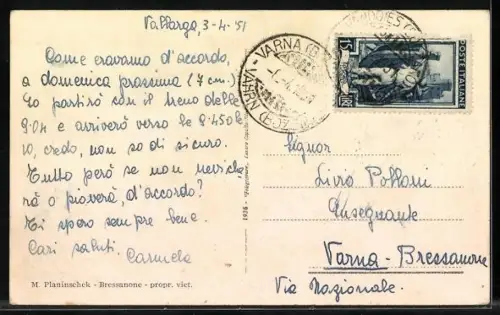 Vallarga, 3-4-51
Come eravamo d'accordo,
a domenica prossima (7 cm.)
Io partirò con il treno delle
9.04 e arriverò verso le 9.45 o le
10, credo, non so di sicuro.
Tutto però se non neviche
rà o pioverà, d'accordo?
Ti spero sempre bene.
Cari saluti. Carmela
M. Planinschek - Bressanone - propr. viet.
1826
VARNA
POSTE ITALIANE
15
Signor
Livio
Insegnante
Varna - Bressanone
Via Nazionale.